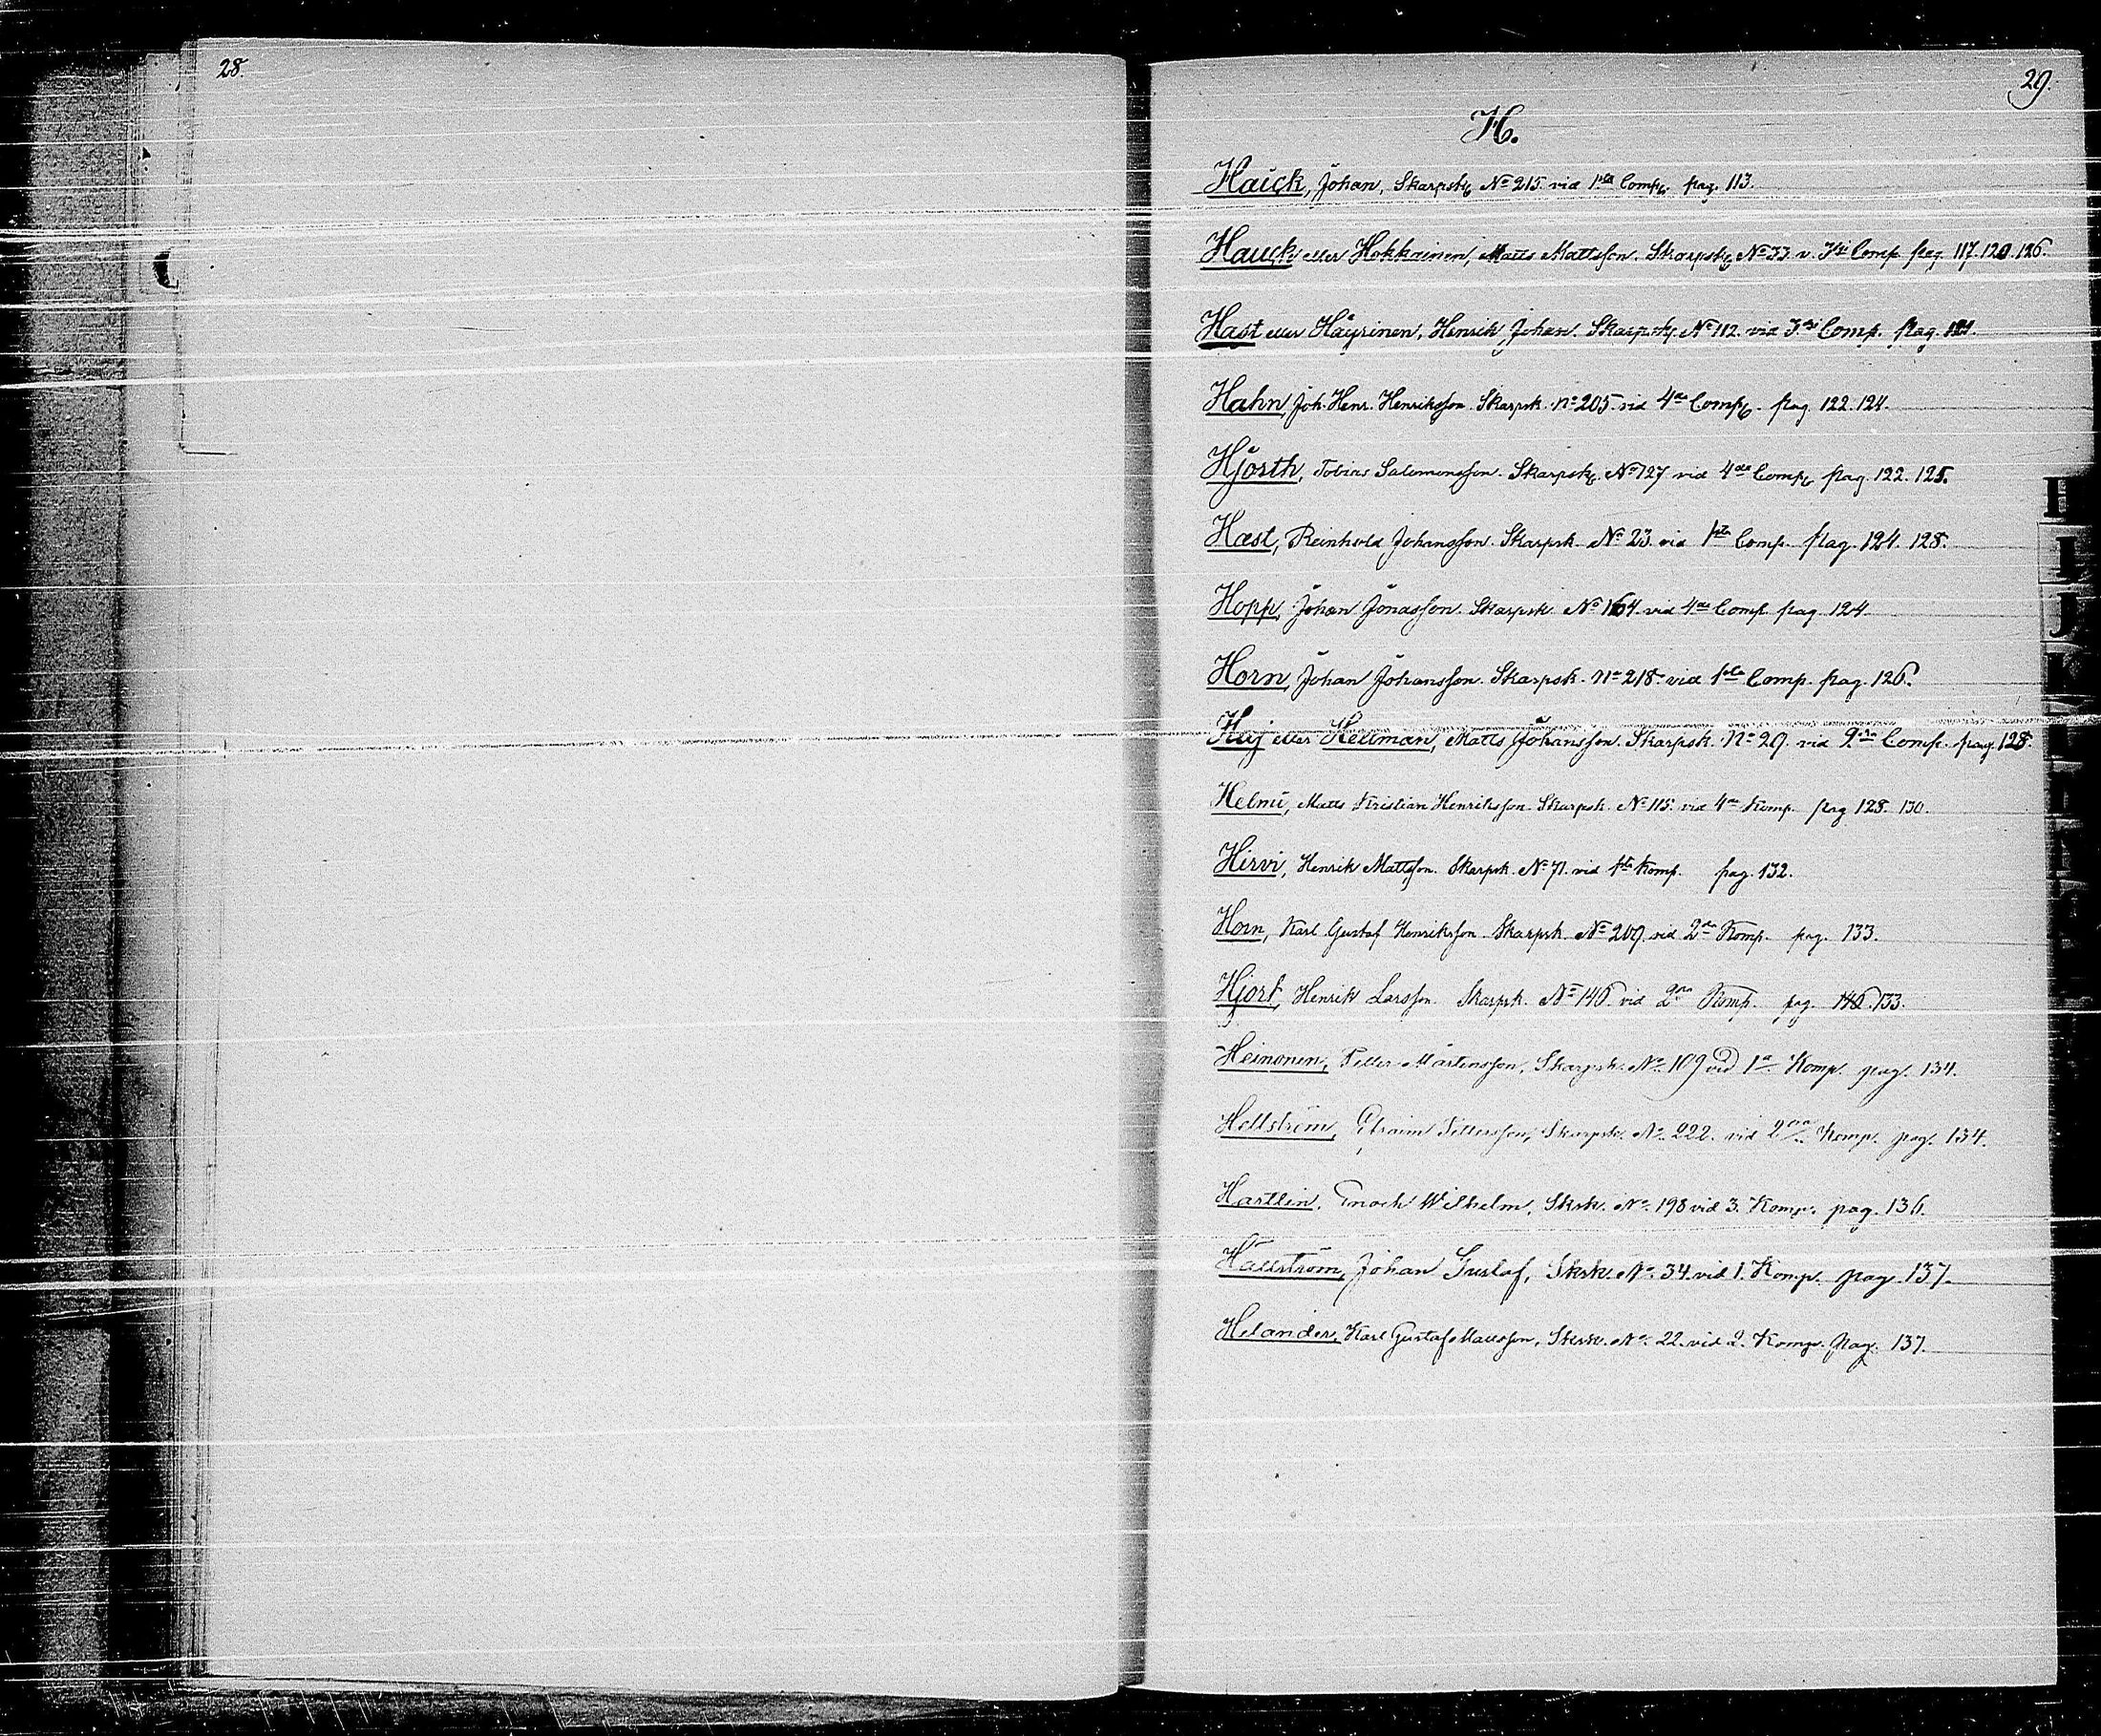 28.
29.
H.
Haick, Johan, Skarpsk. No 215. vid 1sta Comp. pag. 113.
Hauck eller Hokkainen, Matts Mattsson. Skarpsk. No 33. v. 3die Comp pag. 117. 120. 126.
Hast eller Häyrinen, Henrik Johan. Skarpsk. No 112. vid 3die Comp. pag. 121.
Hahn, Joh. Henr. Henriksson. Skarpsk. No 205. vid 4de Comp. pag. 122. 124.
Hjorth, Tobias Salomonsson. Skarpsk. No 127 vid 4de Comp. pag. 122. 125.
Hast, Reinhold Johansson. Skarpsk. No 23. vid 1sta Comp. pag. 124. 128.
Hopp, Johan Jonasson. Skarpsk. No 164. vid 4de Comp. pag. 124.
Horn, Johan Johansson. Skarpsk. No 218. vid 1sta Comp. pag. 126.
Haj eller Hellman, Matts Johansson. Skarpsk. No 29. vid 2dra Comp. pag. 128.
Helmi, Matts Kristian Henriksson. Skarpsk. No 115. vid 4de Komp. pag 128. 130.
Hirvi, Henrik Mattsson. Skarpsk. No 71. vid 1sta Komp. pag. 132.
Horn, Karl Gustaf Henriksson. Skarpsk. No 209. vid 2dra Komp. pag. 133.
Hjort, Henrik Larsson. Skarpsk. No 146. vid 2dra Komp. pag. 146. 133.
Heinonen, Petter Mårtensson, Skarpsk. No. 109 vid 1a Komp. pag. 134.
Hellström, Efraim Pettersson, Skarpsk. No. 222. vid 2dra Komp. pag. 134.
Hartlin, Enoch Wilhelm, Sksk. No. 198 vid 3. Komp. pag. 136.
Hällström, Johan Gustaf, Sksk. No. 34. vid 1. Komp. pag. 137.
Helander, Karl Gustaf Mattsson, Sksk. No. 22. vid 2. Komp. pag. 137.
I
J
K